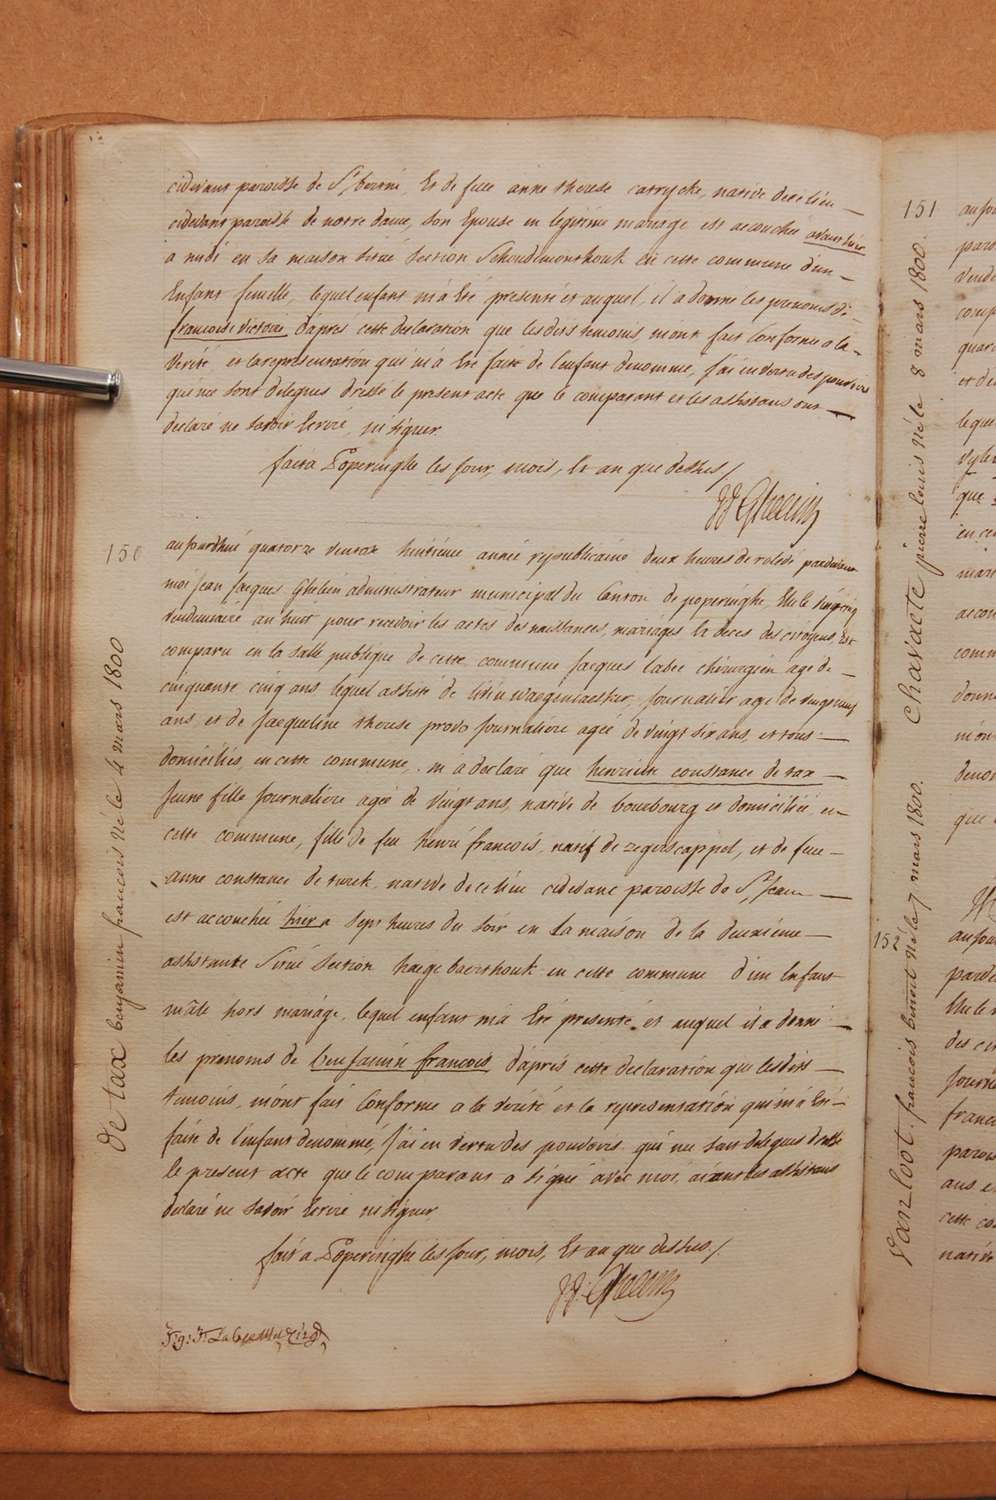 cidevant paroisse de St bertin, Et de feue anne therese carrycke, native decé lieu
cidevant paroisse de notre dame, son Epouse en legitime mariage est accouchée avant hier
a midi en sa maison situé section Schoudemonthouk en cette commune d'un
Enfant femelle, lequel enfant m'a Eté presenté et auquel il a donné les prenoms de
francoise victoire, d'apres cette declaration que lesdits temoins, m'ont fait Conforme a la
Verité, et la representation qui m'a Eté faite de l'enfant denommé, j'ai en vertu des pouvoirs
qui me sont delegués dressé le present acte que le comparant et les assistans ont
declaré ne savoir Ecrire, ni signer
fait a Poperinghe les jour, mois, Et an que dessus /
JJ Ghelein
150
aujourdhui quatorze ventose huitieme année republicaine deux heures de relevé pardevant
moi Jean Jacques Ghelein administrateur municipal du Canton de poperinghe, Elu le
vendemiaire an huit pour recevoir les actes des naissances, mariages la deces des citoyens Est
comparu en la salle publique de cette commune Jacques Labee chirurgien agé de
cinquante cinq ans lequel assisté de livin waegenaelker, Journalier agé de vingt neuf
ans, et de Jacqueline therese provo Journaliere agée de vingt six ans, et tous
domiciliés, en cette commune, m'a declaré que henriette constance de tax
Jeune fille Journaliere agée de vingt ans, native de bourbourg et domiciliée en
cette commune, fille de feu henri francois, natif de zegerscappel, et de feue
anne constance de turck, native de ce lieu cidevant paroisse de St Jean
est accouchée hier a sept heures du soir en la maison de la deuxieme
assistante Situé section haegebaerthouk en cette commune d'un Enfant
mâle hors mariage, lequel enfant m'a Eté presenté, et auquel il a donné
les prenoms de benjamin francois d'après cette declaration que lesdits
temoins, m'ont fait Conforme a la verité et la representation qui m'a Eté
faite de l'enfant denommé, j'ai en vertu des pouvoirs qui me sont delegués dressé
le present acte que le comparant a signé avec moi, aiant les assistans
declaré ne savoir Ecrire ni signer
fait a Poperinghe les jour, mois, Et an que dessus /
JJ: Ghelein
de tax benjamin francois Né le 4 mars 1800
151
chavaete pierre louis Né le 8 mars 1800.
152
Vanloot. francois benoit Né le 7 mars 1800.